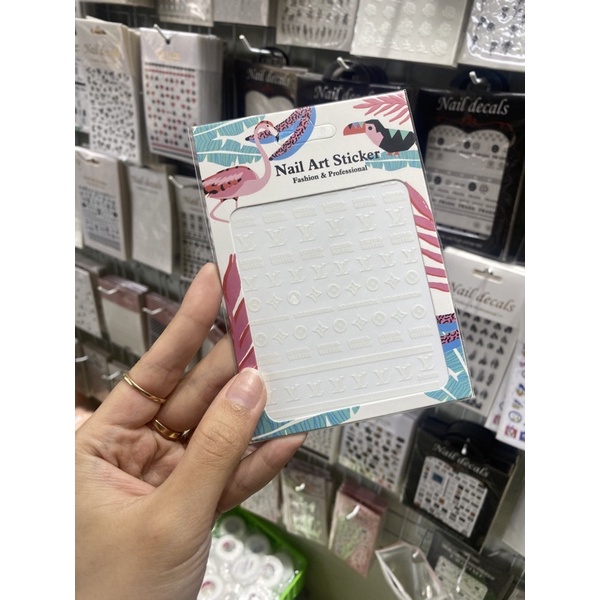 Nail Art Sticker
Fashion & Professional
Nail decals
Nail decals
Nail decals
Nail decals